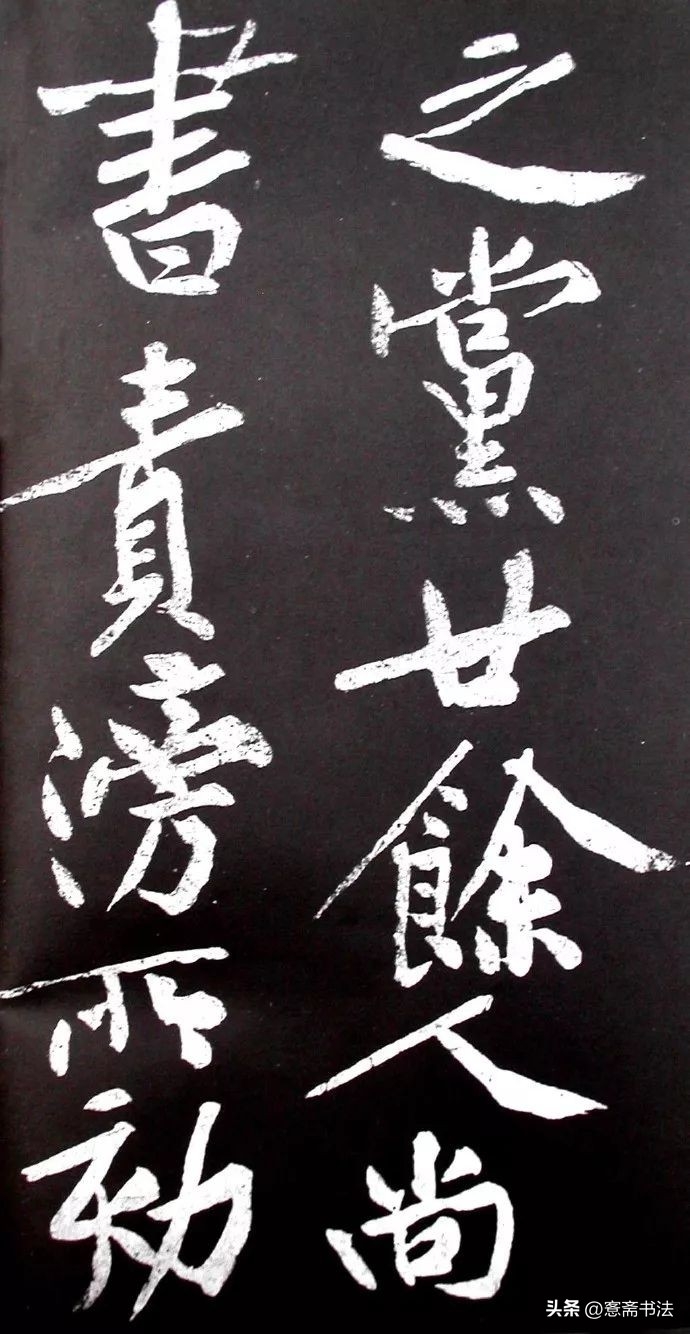 之黨廿餘人尚
書責滂所劾
头条 @愙斋书法